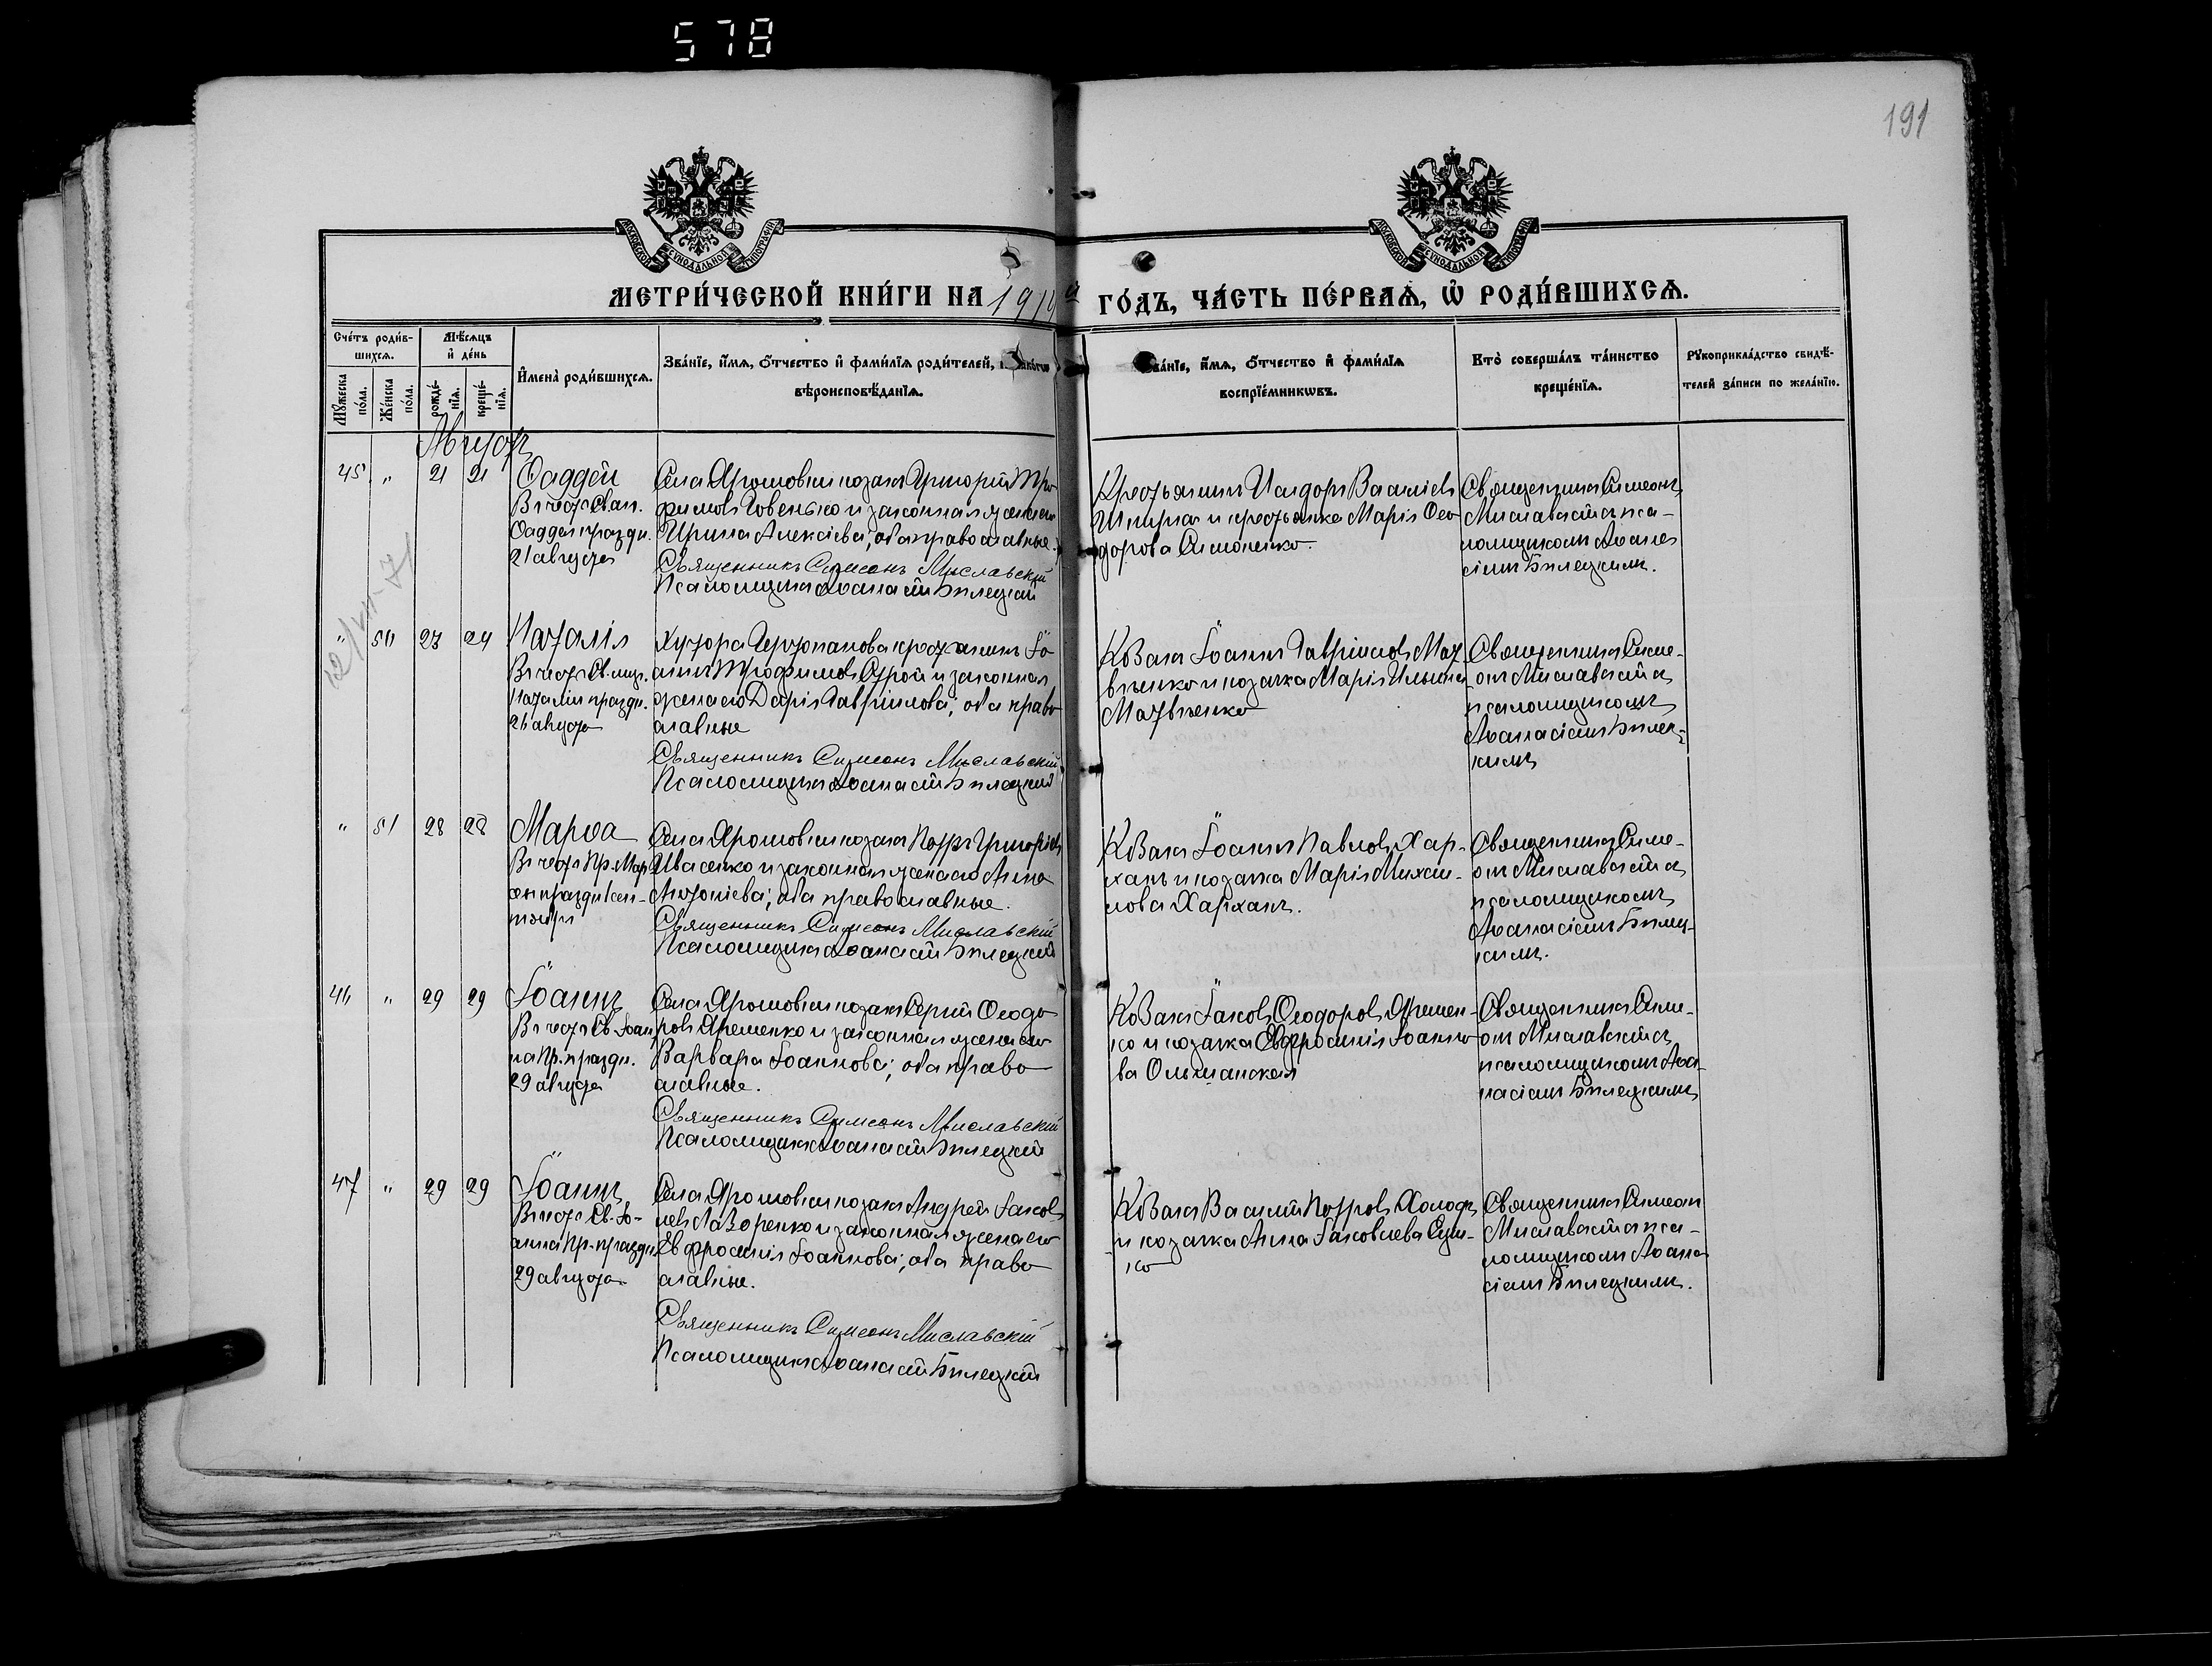 578
191
МОСКОВСКОЙ СѴНОДАЛЬНОЙ ТИПОГРАФІИ
МОСКОВСКОЙ СѴНОДАЛЬНОЙ ТИПОГРАФІИ
МЕТРИ́ЧЕСКОЙ КНИ́ГИ НА 191
ГО́ДЪ, ЧА́СТЬ ПЕ́РВАѦ, Ѡ҆ РОДИ́ВШИХСѦ.
Сче́тъ роди́в-
шихсѧ.
Мѣ́сѧцъ
и҆ де́нь
Мꙋ́жеска
по́ла.
Же́нска
по́ла.
рожде́-
нїѧ.
креще́-
нїѧ.
И҆мена̀ роди́вшихсѧ.
Зва́нїе, и҆́мѧ, ѻ҆́тчество и҆ фами́лїѧ роди́телей,
вѣроисповѣ́данїѧ.
ва́нїе, и҆́мѧ, ѻ҆́тчество и҆ фами́лїѧ
воспрїе́мникѡвъ.
Кто̀ соверша́лъ та́инство
креще́нїѧ.
Рꙋкоприкла́дство свидѣ́-
телей за́писи по жела́нїю.
Августъ
45 " 21 21
Ѳаддей
Въ честь Св. ап.
Ѳаддея праздн.
21 августа
Села Ярошовки козакъ Григорій Тро-
фимовъ Говенько и законная жена его
Ирина Алексіева; оба православные.
Священникъ Симеонъ Миславскій
Псаломщикъ Аѳанасій Бѣлецкій
Крестьянинъ Исидоръ Василіевъ
Шпирка и крестьянка Марія Ѳео-
дорова Симоненко.
Священникъ Симеонъ
Миславскій съ пса-
ломщикомъ Аѳана-
сіемъ Бѣлецкимъ.
" 50 23 24
Наталія
Въ честь Св. муч.
Наталіи праздн.
26 августа
Хутора крестьянинъ Іо-
аннъ Трофимовъ и законная
жена его Дарія Гавріилова; оба право-
славные
Священникъ Симеонъ Миславскій
Псаломщикъ Аѳанасій Бѣлецкій
Козакъ Іоаннъ Гавріиловъ Мат-
вѣенко и козачка Марія Ильина
Матвѣенко
Священникъ Симе-
онъ Миславскій съ
псаломщикомъ
Аѳанасіемъ Бѣлец-
кимъ
" 51 28 28
Марѳа
Въ честь Пр. Мар-
ѳы праздн. 1 сен-
тября
Села Ярошовки козакъ Петръ Григоріевъ
Ивасенко и законная жена его Анна
Антоніева; оба православные.
Священникъ Симеонъ Миславскій
Псаломщикъ Аѳанасій Бѣлецкій
Козакъ Іоаннъ Павловъ Хар-
ханъ и козачка Марія Михаи-
лова Харханъ.
Священникъ Симе-
онъ Миславскій съ
псаломщикомъ
Аѳанасіемъ Бѣлец-
кимъ.
46 " 29 29
Іоаннъ
Въ честь Св. Іоан-
на Пр. праздн.
29 августа
Села Ярошовки козакъ Сергій Ѳеодо-
ровъ Яременко и законная жена его
Варвара Іоаннова; оба право-
славные.
Священникъ Симеонъ Миславскій
Псаломщикъ Аѳанасій Бѣлецкій
Козакъ Іаковъ Ѳеодоровъ Яремен-
ко и козачка Евфросинія Іоанно-
ва Ольшанская
Священникъ Симе-
онъ Миславскій съ
псаломщикомъ Аѳа-
насіемъ Бѣлецкимъ
47 " 29 29
Іоаннъ
Въ честь Св. Іо-
анна Пр. праздн.
29 августа
Села Ярошовки козакъ Андрей Іаков-
левъ Лазоренко и законная жена его
Евфросинія Іоаннова; оба право-
славные.
Священникъ Симеонъ Миславскій
Псаломщикъ Аѳанасій Бѣлецкій
Козакъ Василій Петровъ Холодъ
и козачка Анна Іаковлева Суш-
ко
Священникъ Симеонъ
Миславскій съ пса-
ломщикомъ Аѳана-
сіемъ Бѣлецкимъ.